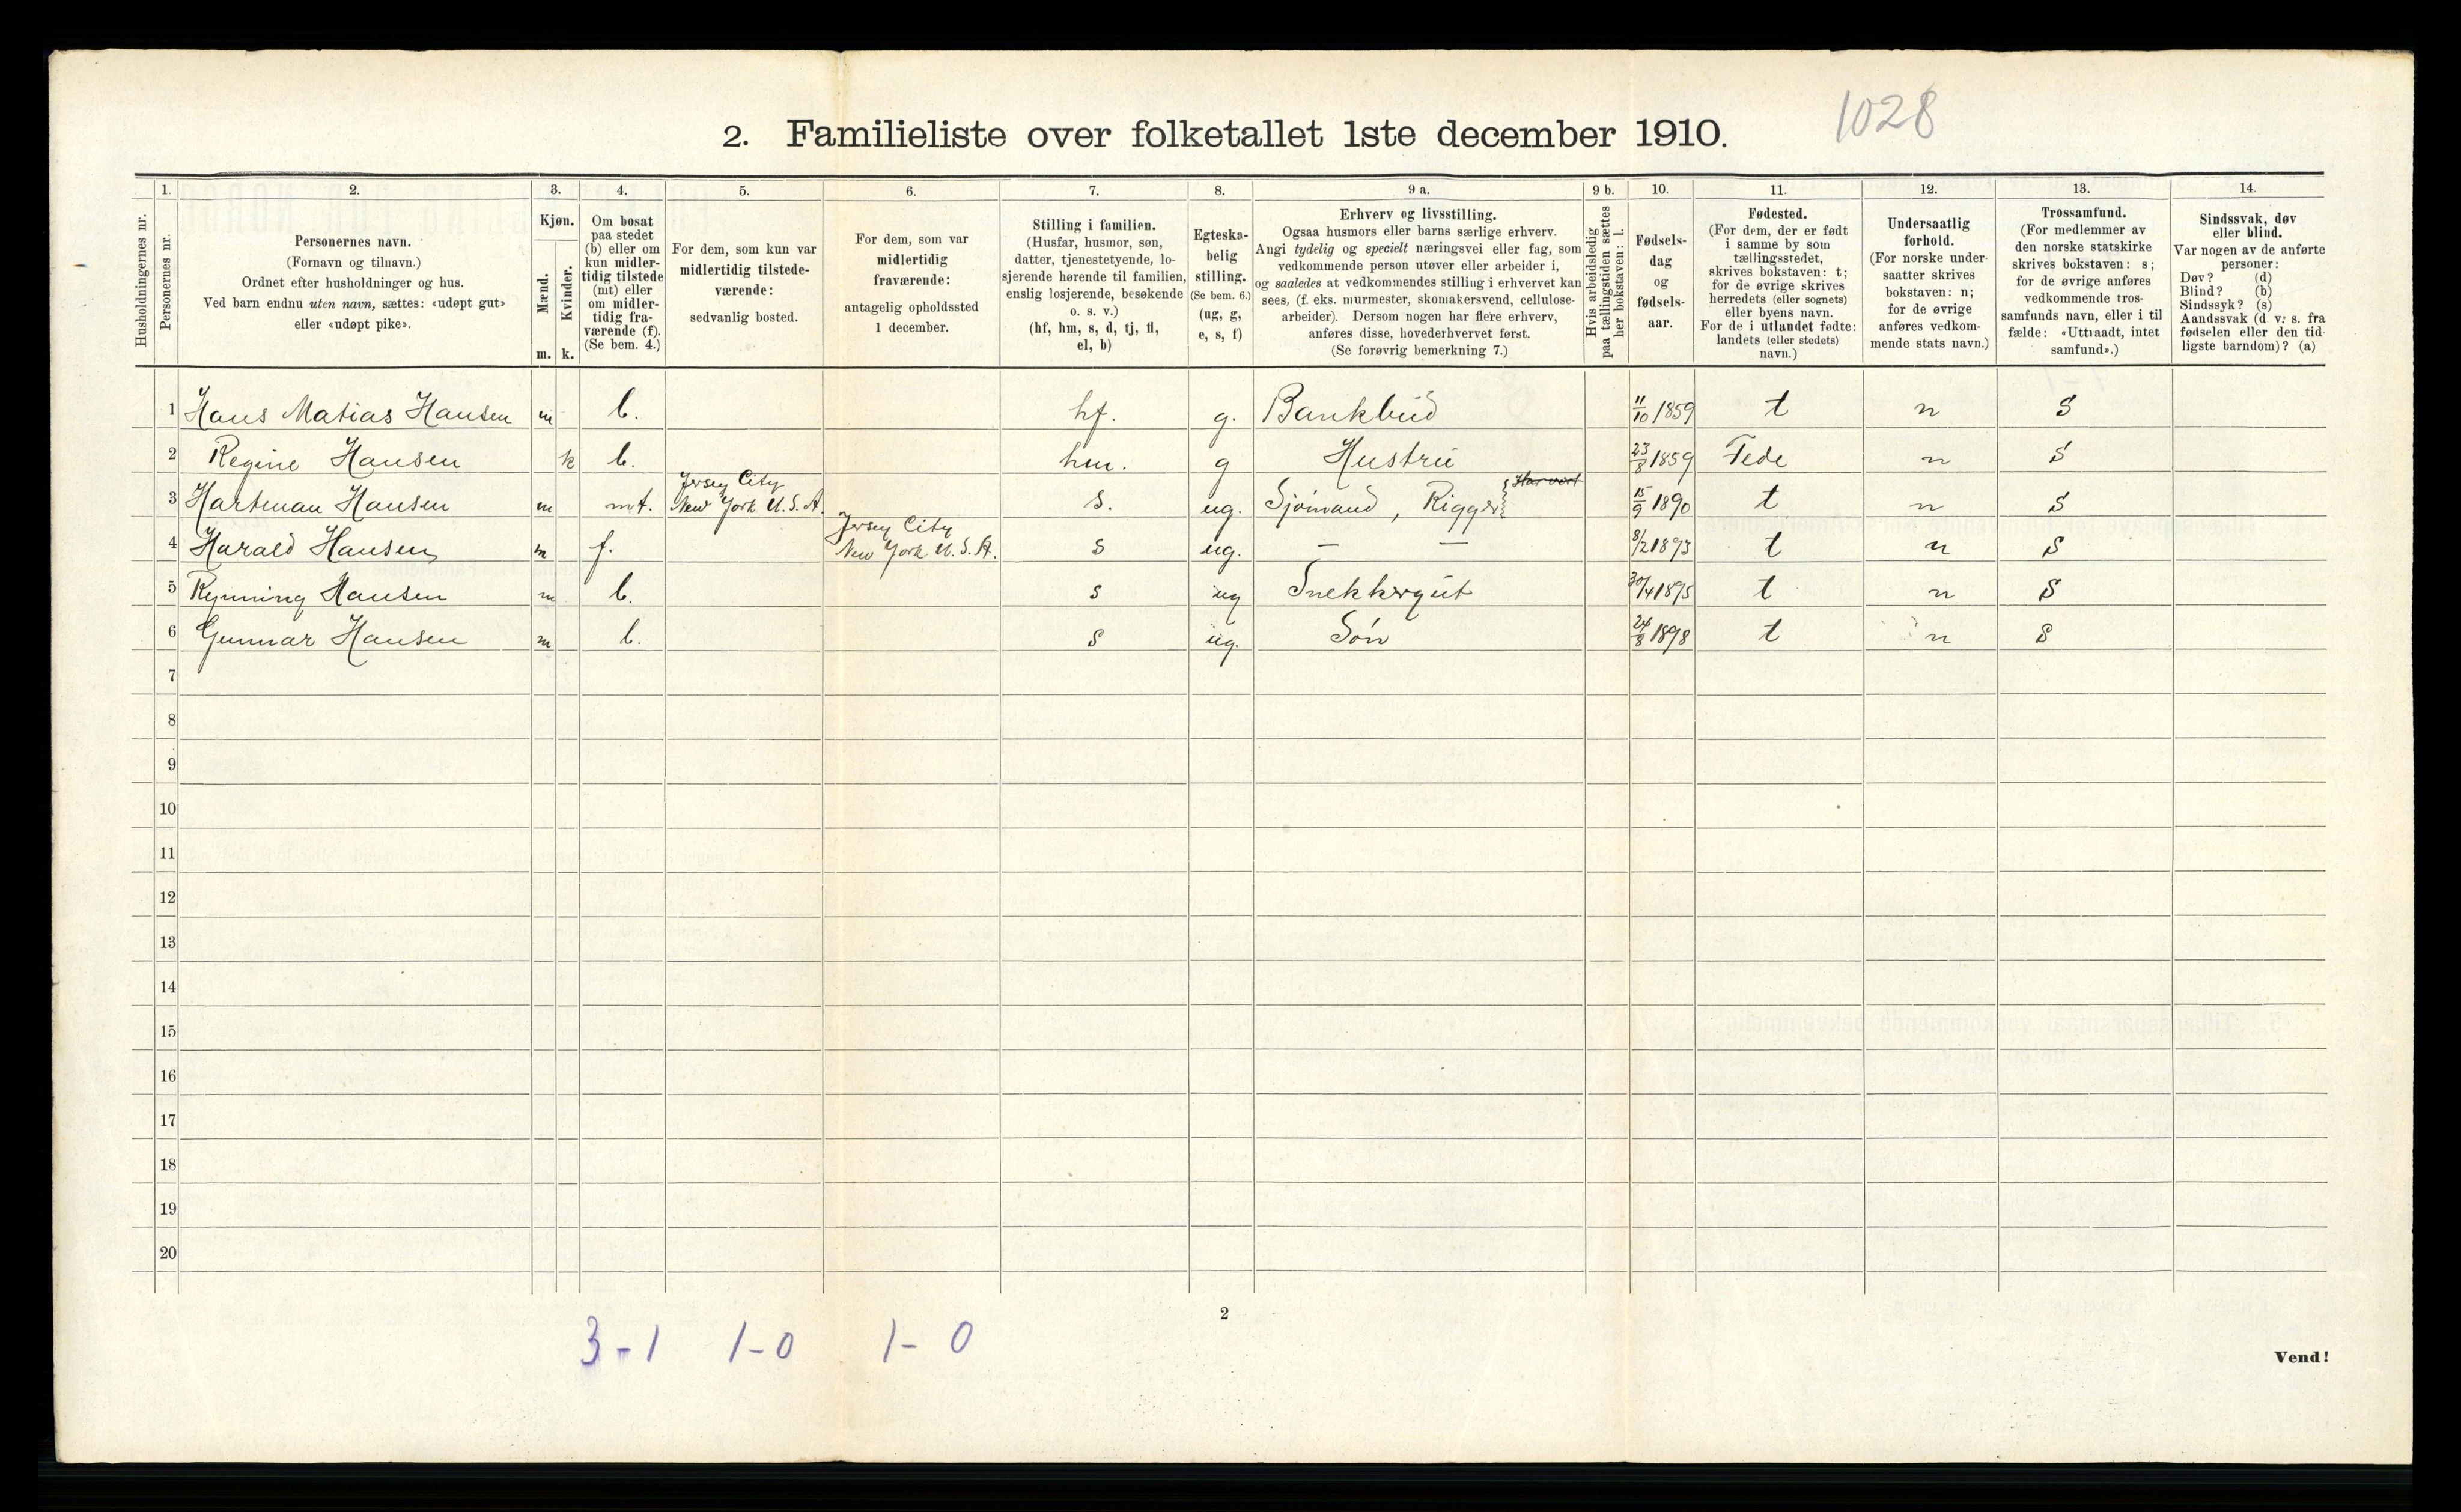 1028
2. Familieliste over folketallet 1ste december 1910.
1. 2. 3. 4. 5. 6. 7. 8. 9 a. 9 b. 10. 11. 12. 13. 14.
Husholdningernes nr.
Personernes nr.
Personernes navn.
(Fornavn og tilnavn.)
Ordnet efter husholdninger og hus.
Ved barn endnu uten navn, sættes: «udøpt gut»
eller «udøpt pike».
Kjøn.
Mænd.
Kvinder.
m. k.
Om bosat
paa stedet
(b) eller om
kun midler-
tidig tilstede
(mt) eller
om midler-
tidig fra-
værende (f).
(Se bem. 4.)
For dem, som kun var
midlertidig tilstede-
værende:
sedvanlig bosted.
For dem, som var
midlertidig
fraværende:
antagelig opholdssted
1 december.
Stilling i familien.
(Husfar, husmor, søn,
datter, tjenestetyende, lo-
sjerende hørende til familien,
enslig losjerende, besøkende
o. s. v.)
(hf, hm, s, d, tj, fl,
el, b)
Egteska-
belig
stilling.
(Se bem. 6.)
(ug, g,
e, s, f)
Erhverv og livsstilling.
Ogsaa husmors eller barns særlige erhverv.
Angi tydelig og specielt næringsvei eller fag, som
vedkommende person utøver eller arbeider i,
og saaledes at vedkommendes stilling i erhvervet kan
sees, (f. eks. murmester, skomakersvend, cellulose-
arbeider). Dersom nogen har flere erhverv,
anføres disse, hovederhvervet først.
(Se forøvrig bemerkning 7.)
Hvis arbeidsledig
paa tællingstiden sættes
her bokstaven: l.
Fødsels-
dag
og
fødsels-
aar.
Fødested.
(For dem, der er født
i samme by som
tællingsstedet,
skrives bokstaven: t;
for de øvrige skrives
herredets (eller sognets)
eller byens navn.
For de i utlandet fødte:
landets (eller stedets)
navn.)
Undersaatlig
forhold.
(For norske under-
saatter skrives
bokstaven: n;
for de øvrige
anføres vedkom-
mende stats navn.)
Trossamfund.
(For medlemmer av
den norske statskirke
skrives bokstaven: s;
for de øvrige anføres
vedkommende tros-
samfunds navn, eller i til-
fælde: «Uttraadt, intet
samfund».)
Sindssvak, døv
eller blind.
Var nogen av de anførte
personer:
Døv? (d)
Blind? (b)
Sindssyk? (s)
Aandssvak (d. v. s. fra
fødselen eller den tid-
ligste barndom)? (a)
1 Hans Matias Hansen m b. hf. g. Bankbud 11/10 1859 t n S
2 Regine Hansen k b. hm. g Hustru 23/8 1859 Fede n S
3 Hartman Hansen m mt. Jersey City New York U.S.A. s. ug. Sjømand, Rigger 15/9 1890 t n S
4 Harald Hansen m f. Jersey City New York U.S.A. s ug. — — 8/2 1893 t n S
5 Rynning Hansen m b. s ug Snekkergut 30/4 1895 t n S
6 Gunnar Hansen m b. s ug. Søn 24/8 1898 t n S
7
8
9
10
11
12
13
14
15
16
17
18
19
20
2
3-1 1-0 1-0
Vend!